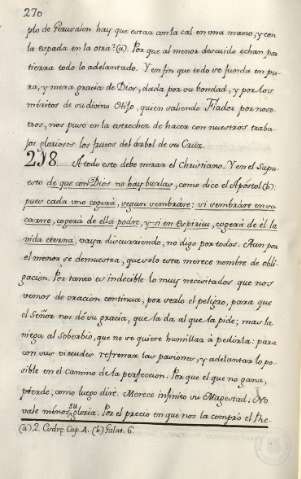 270
plo de Jerusalen hay que estar con la cal en una mano, y con
la espada en la otra? (a). Por que al menor descuido echan por
tierra todo lo adelantado. Y en fin que todo se funda en pu-
ra, y mera gracia de Dios, dada por su bondad, y por los
meritos de su divino Hijo, quien saliendo Fiador por noso-
tros, nos puso en la estrechez de hacer con nuestros traba-
jos gloriosos los frutos del árbol de su Cruz.
218. A todo esto debe mirar el Christiano. Y en el Supu-
esto de que con Dios no hay burlas, como dice el Apostol (b):
pues cada uno cogerá, segun sembráre; si sembráre en su
carne, cogerá de ella podre, y si en Espiritu, cogerá de él la
vida eterna, vaya discurriendo, no digo por todos. Aun por
el menor se demuestra, que solo esta merece nombre de obli-
gacion. Por tanto es indecible lo muy necesitados que nos
vemos de oracion continua, por verlo el peligro, para que
el Señor nos dé su gracia, que la dá al que la pide; mas la
niega al sobervio, que no se quiere humillar à pedirla: para
con sus virtudes refrenar las pasiones, y adelantar lo po-
sible en el camino de la perfeccion. Por que el que no gana,
pierde, como luego diré. Merece infinito su Magestad. No
vale menos su gloria. Por el precio en que nos la compró el He-
(a) 2. Esdræ Cap. 4. (b) Galat. 6.